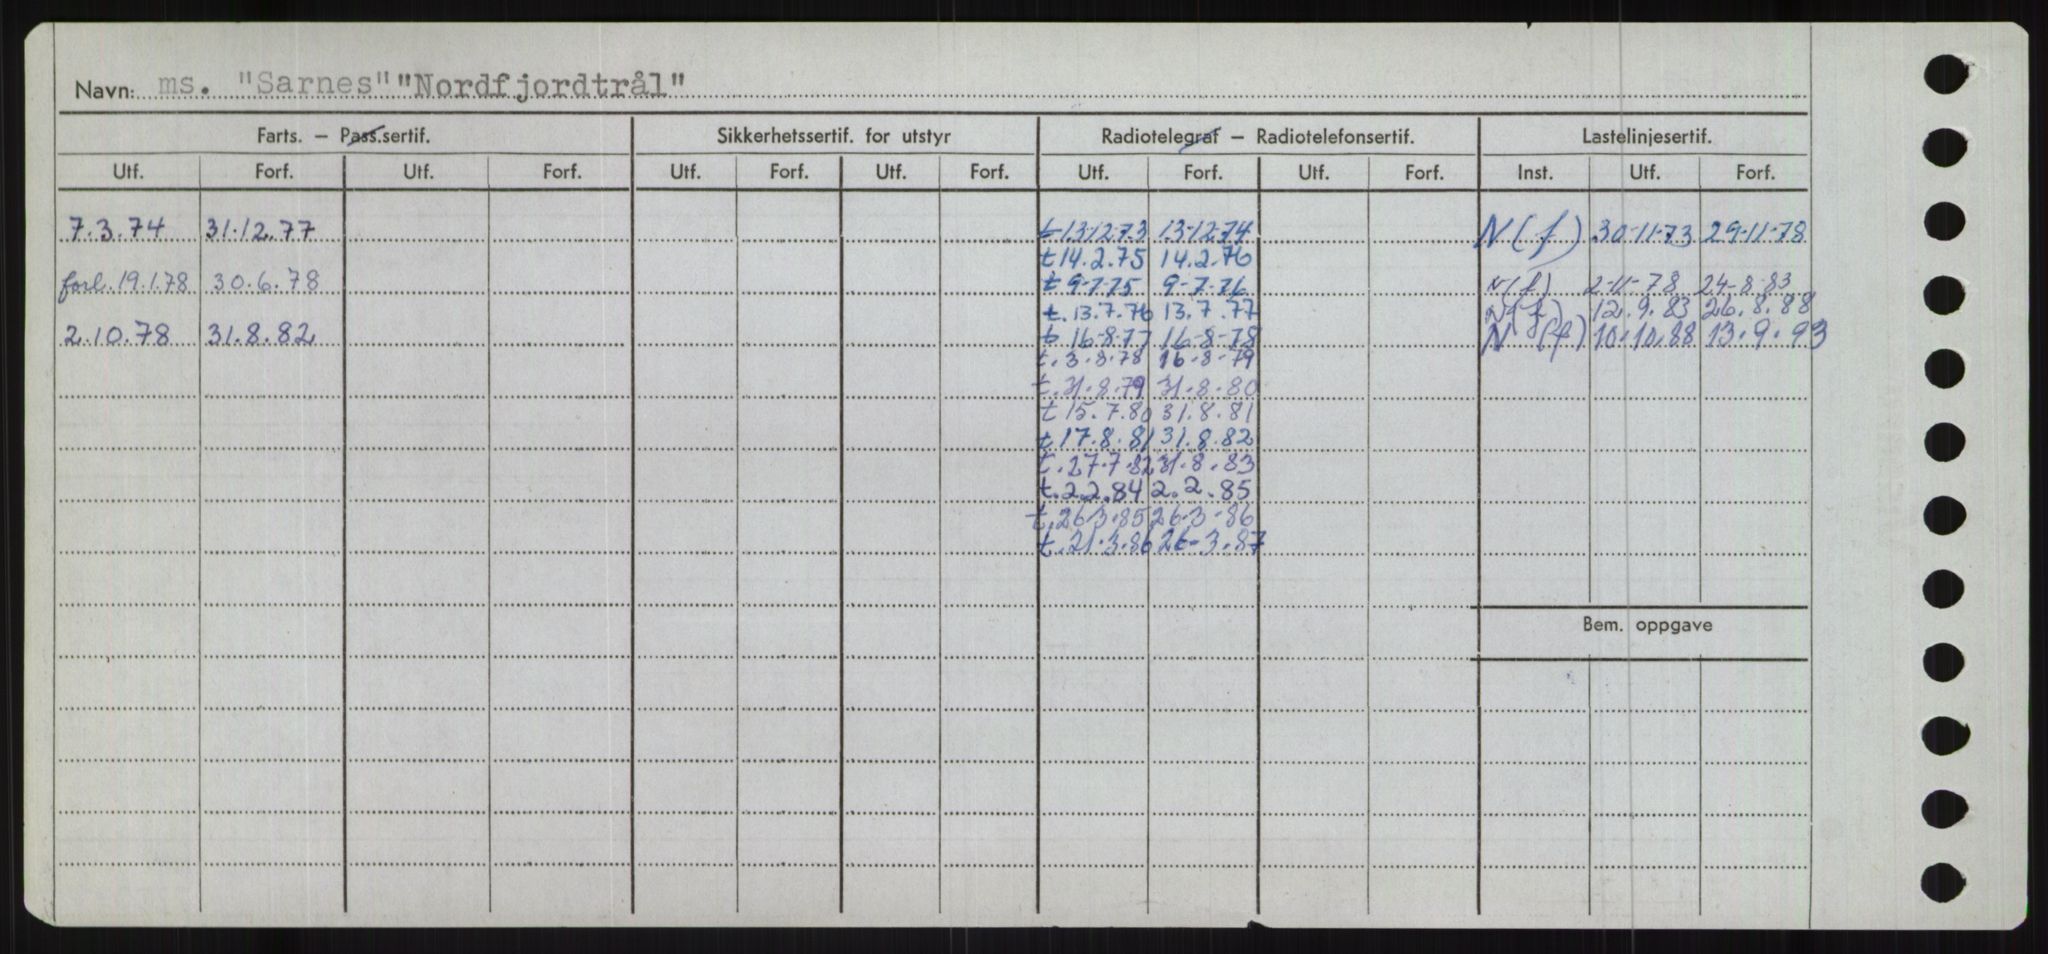 Navn: ms. "Sarnes" "Nordfjordtrål"
Farts. — Pass.sertif. Sikkerhetssertif. for utstyr Radiotelegraf — Radiotelefonsertif. Lastelinjesertif.
Utf. Forf. Utf. Forf. Utf. Forf. Utf. Forf. Utf. Forf. Utf. Forf. Inst. Utf. Forf.
7.3.74 31.12.77 t 13-12-73 13-12-74 N(f) 30-11-73 29-11-78
t 14.2.75 14.2.76
forl. 19.1.78 30.6.78 t 9-7-75 9-7-76 N(f) 2-11-78 24-8-83
t. 13.7.76 13.7.77 N(f) 12.9.83 26.8.88
2.10.78 31.8.82 t 16-8-77 16-8-78 N(f) 10.10.88 13.9.93
t. 3.8.78 16.8-79
t. 31.8.79 31.8.80
t 15.7.80 31.8.81
t. 17.8.81 31.8.82
t. 27.7.82 31.8.83
t. 2.2.84 2.2.85
t. 26.3.85 26.3-86
t. 21.3.86 26-3.87
Bem. oppgave